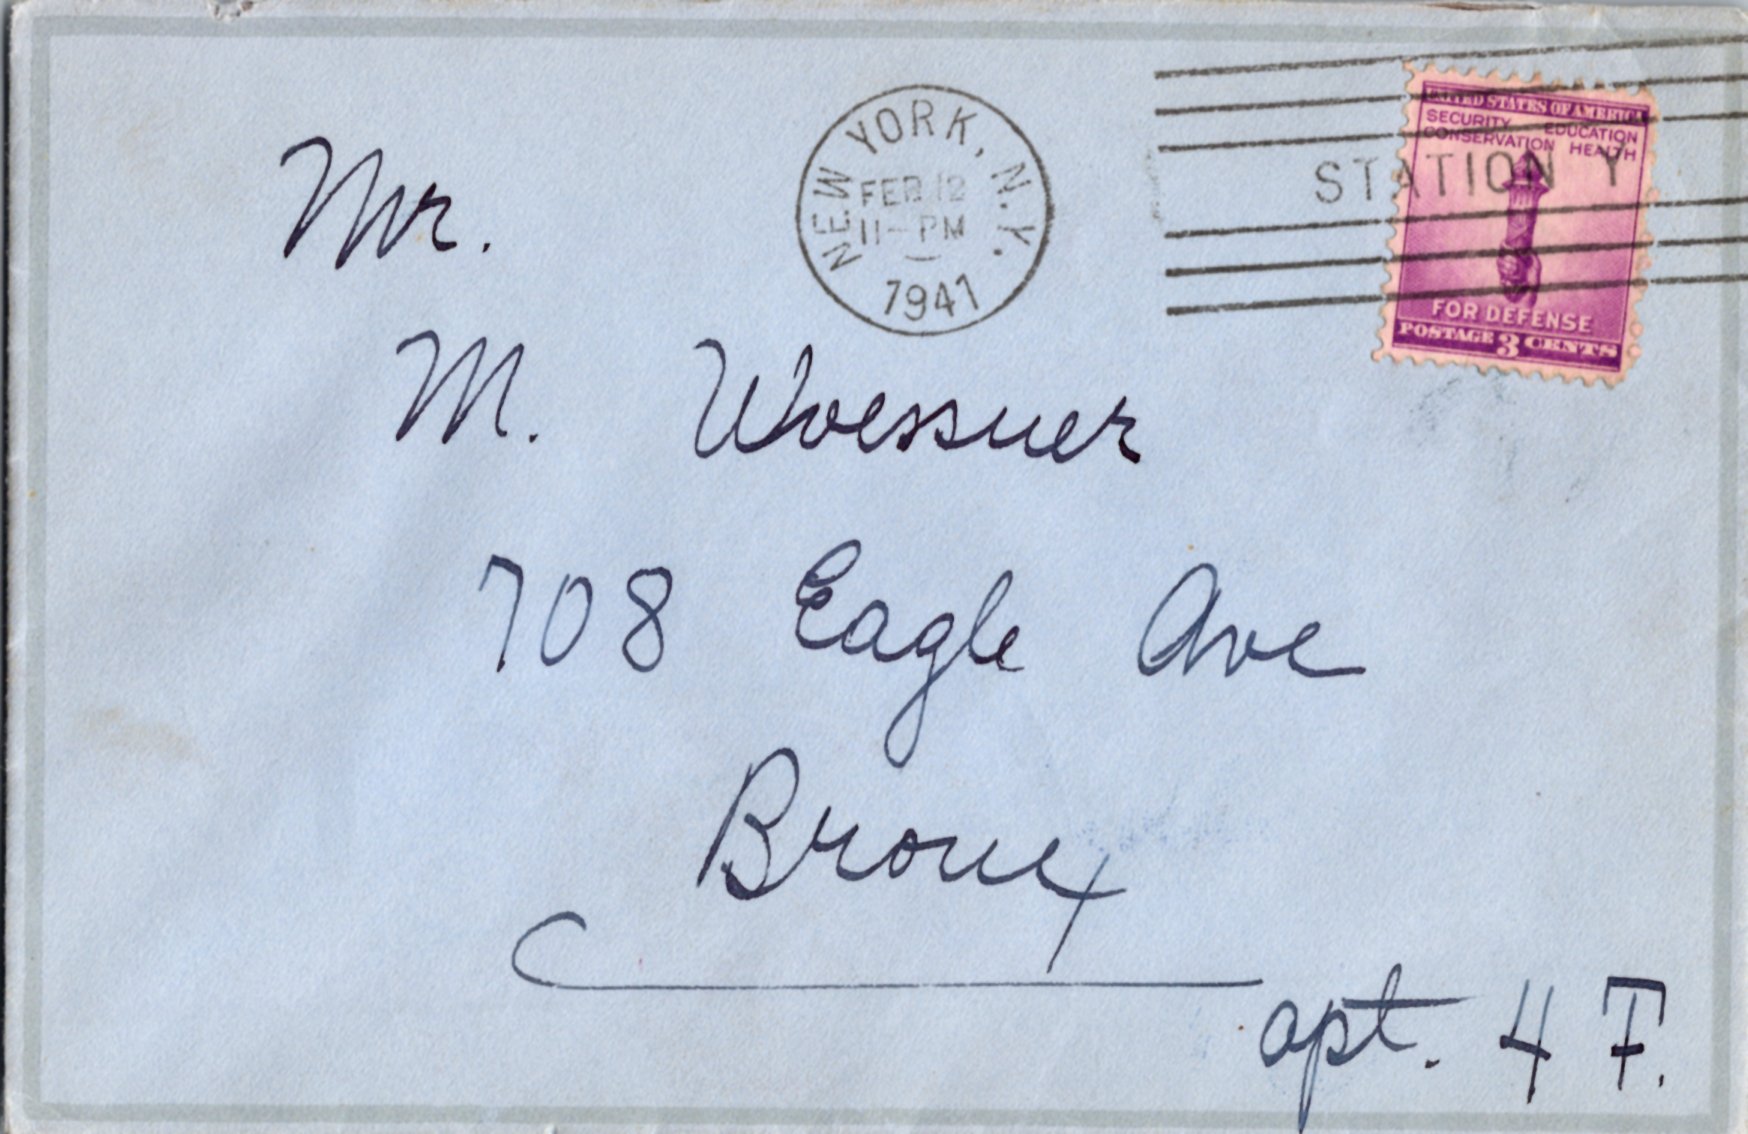 NEW YORK, N.Y.
FEB 12
11- PM
1941
STATION Y
UNITED STATES OF AMERICA
SECURITY EDUCATION
CONSERVATION HEALTH
FOR DEFENSE
POSTAGE 3 CENTS
Mr.
M. Woessner
708 Eagle Ave
Bronx
apt. 4 F.